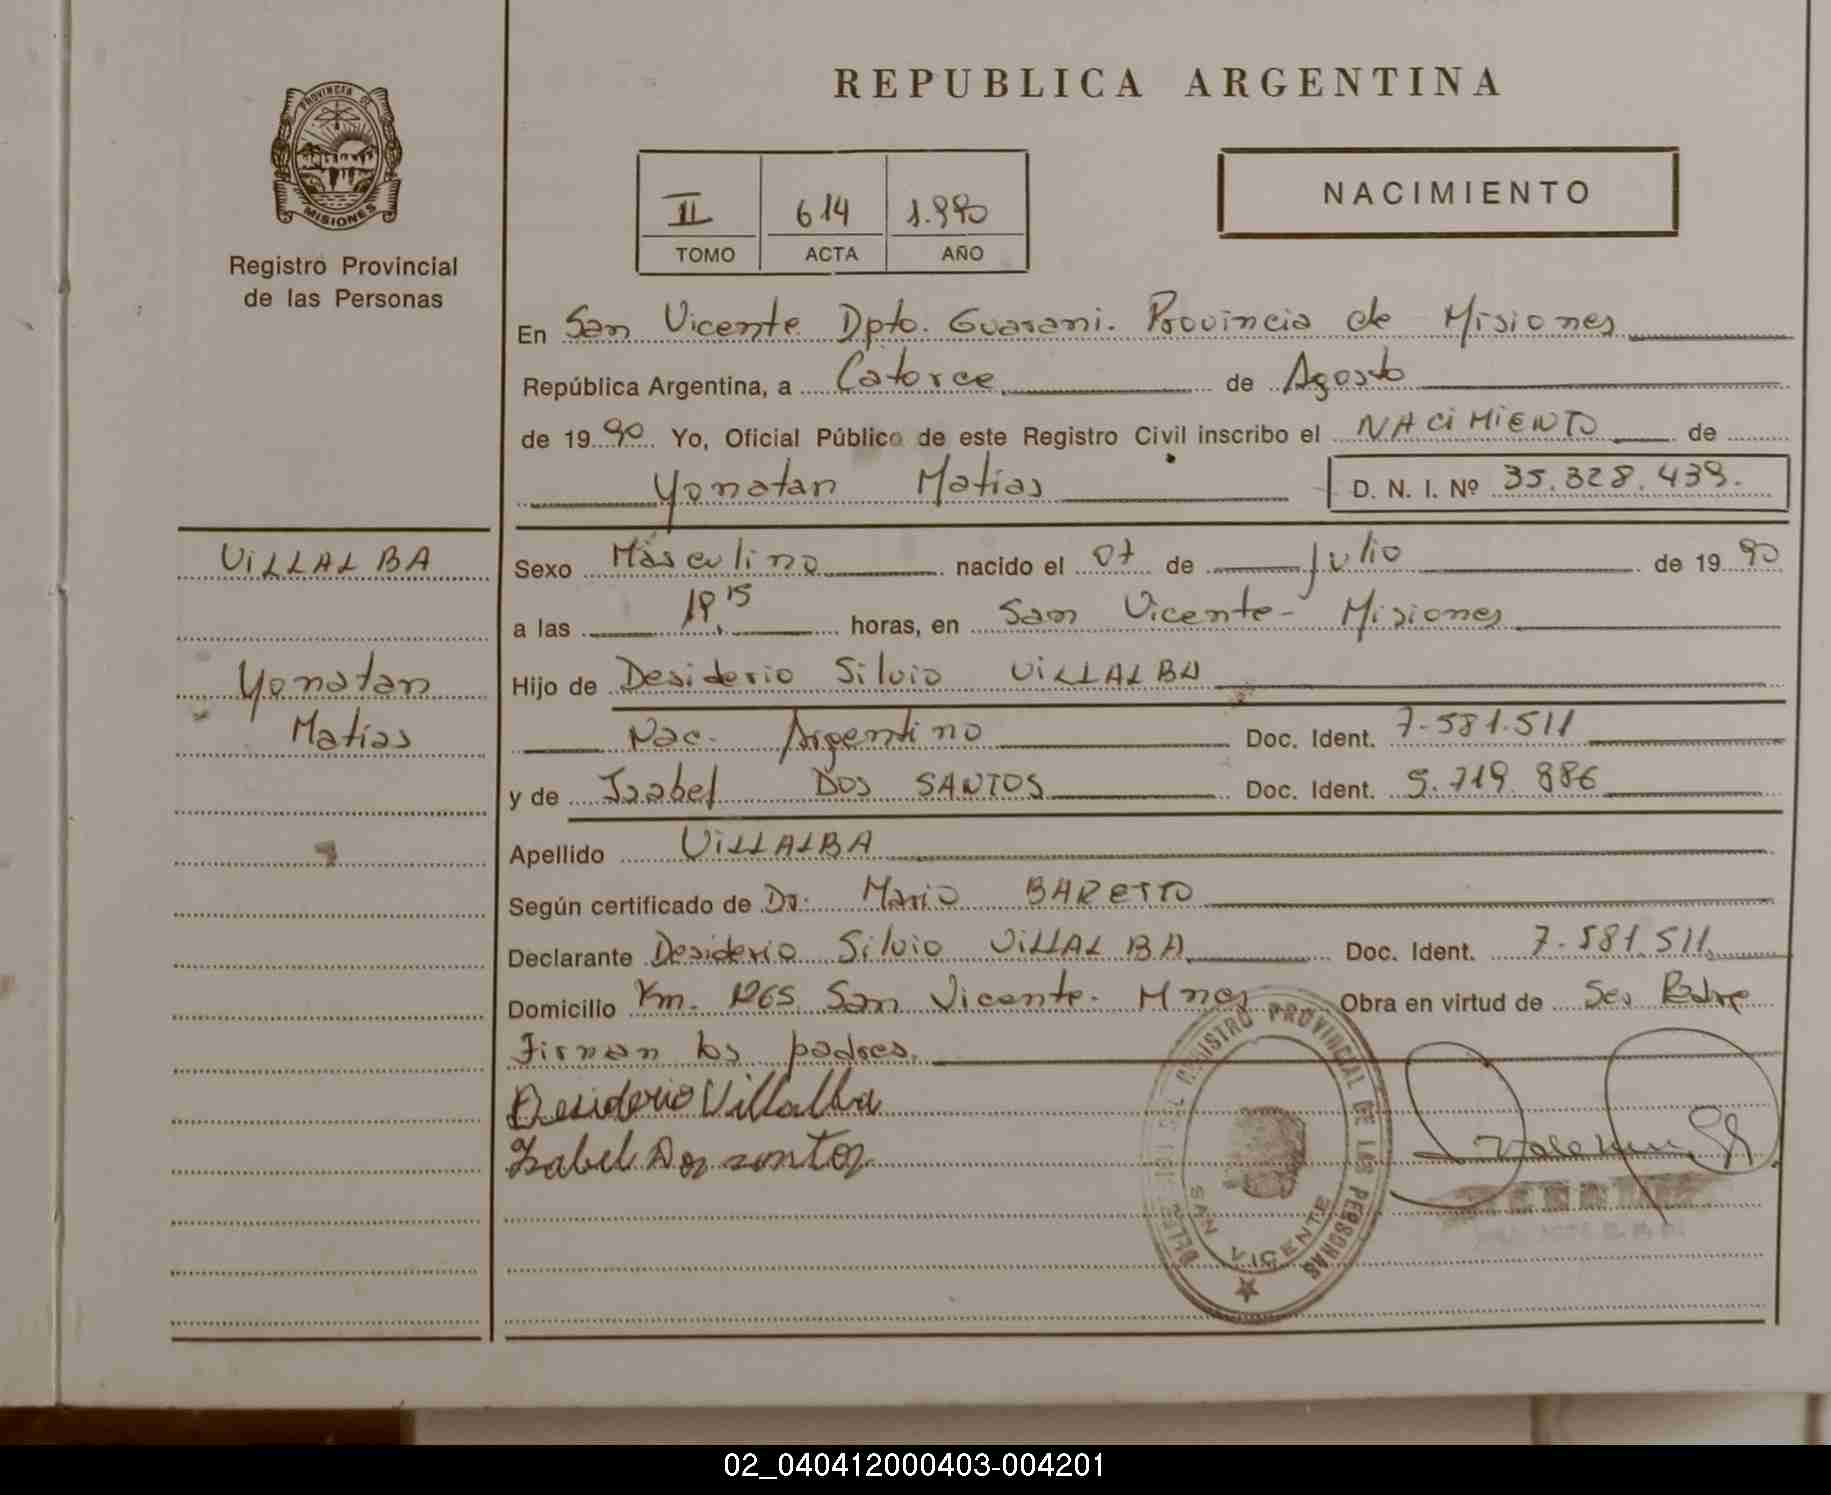 PROVINCIA DE
MISIONES
Registro Provincial
de las Personas
REPUBLICA ARGENTINA
II 614 1.990
TOMO ACTA AÑO
NACIMIENTO
En San Vicente Dpto. Guarani. Provincia de Misiones
República Argentina, a Catorce de Agosto
de 1990 Yo, Oficial Público de este Registro Civil inscribo el NACIMIENTO de
Yonatan Matias D. N. I. Nº 35.328.439.
VILLALBA
Yonatan
Matias
Sexo Masculino nacido el 07 de Julio de 1990
a las 18,15 horas, en San Vicente - Misiones
Hijo de Desiderio Silvio VILLALBA
Nac. Argentino Doc. Ident. 7.581.511
y de Isabel DOS SANTOS Doc. Ident. 5.719.886
Apellido VILLALBA
Según certificado de Dr. Mario BARETTO
Declarante Desiderio Silvio VILLALBA Doc. Ident. 7.581.511
Domicilio Km. 1265 San Vicente. Mnes Obra en virtud de Ser Padre
Firman los padres.
Desiderio Villalba
Isabel Dos santos
REGISTRO PROVINCIAL DE LAS PERSONAS
SAN VICENTE
02_040412000403-004201